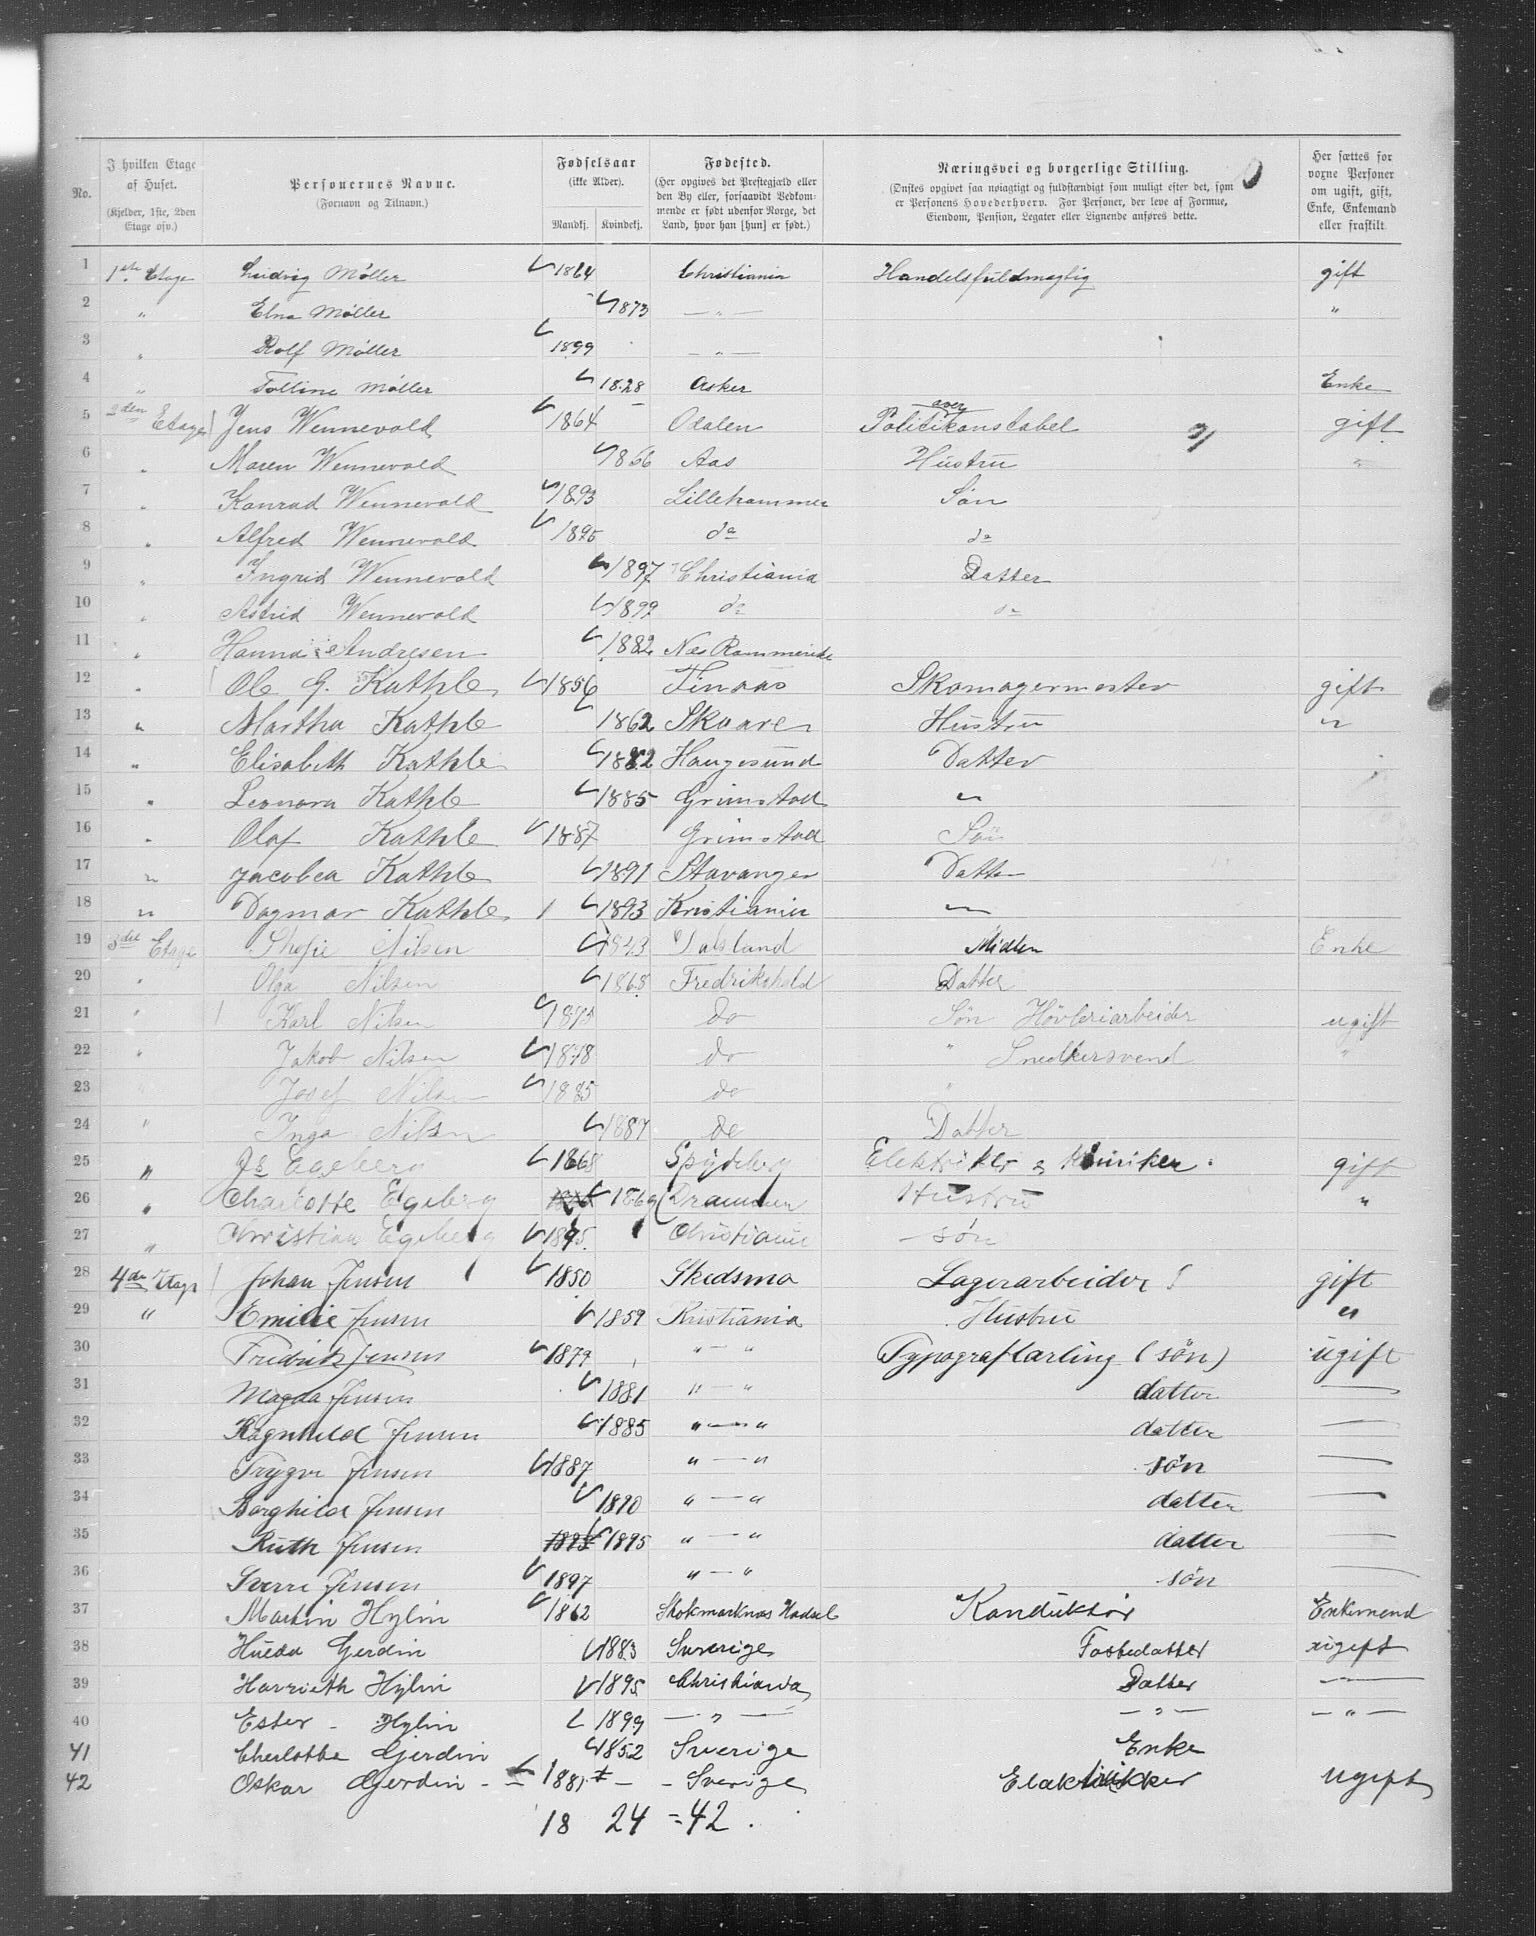 No.
I hvilken Etage af Huset.
(Kjelder, 1ste, 2den Etage osv.)
Personernes Navne.
(Fornavn og Tilnavn.)
Fødselsaar
(ikke Alder).
Mandkj. Kvindekj.
Fødested.
(Her opgives det Prestegjæld eller den By eller, forsaavidt Vedkommende er født udenfor Norge, det Land, hvor han [hun] er født.)
Næringsvei og borgerlige Stilling.
(Ønskes opgivet saa nøiagtigt og fuldstændigt som muligt efter det, som er Personens Hovederhverv. For Personer, der leve af Formue, Eiendom, Pension, Legater eller Lignende anføres dette.
Her sættes for voxne Personer om ugift, gift, Enke, Enkemand eller fraskilt.
1 1ste Etage Ludvig Møller 1864 Christiania Handelsfuldmægtig gift
2 " Elna Møller 1873 — " — "
3 " Rolf Møller 1899 — " —
4 " Tolline Møller 1828 Asker Enke
5 2den Etage Jens Wennevold 1864 Odalen Politioverkonstabel gift
6 " Maren Wennevold 1866 Aas Hustru "
7 " Konrad Wennevold 1893 Lillehammer Søn
8 " Alfred Wennevold 1895 do do
9 " Ingrid Wennevold 1897 Christiania Datter
10 " Astrid Wennevold 1899 do do
11 " Hanna Andresen 1882 Nes Rommerike
12 " Ole G. Kathle 1856 Finaas Skomagermester gift
13 " Martha Kathle 1862 Skaare Hustru "
14 " Elisabeth Kathle 1882 Haugesund Datter
15 " Leonora Kathle 1885 Grimstad "
16 " Olaf Kathle 1887 Grimstad Søn
17 " Jacobea Kathle 1891 Stavanger Datter
18 " Dagmar Kathle 1893 Kristiania "
19 3die Etage Nilsen 1843 Dalsland Enke
20 " Olga Nilsen 1868 Fredrikshald Datter
21 " Karl Nilsen 1875 do Søn Høvleriarbeider ugift
22 " Jakob Nilsen 1878 do " Snedkersvend "
23 " Josef Nilsen 1885 do "
24 " Inga Nilsen 1887 do Datter
25 " Js Egeberg 1868 Spydeberg gift
26 " Charlotte Egeberg 1869 Drammen Hustru "
27 " Christian Egeberg 1895 Christiania søn
28 4de Etage Johan Jensen 1850 Skedsmo Lagerarbeider gift
29 " Emilie Jensen 1859 Kristiania Hustru "
30 Fredrik Jensen 1879 " — " Typograflærling (søn) ugift
31 Magda Jensen 1881 " — " datter —
32 Ragnhild Jensen 1885 " — " datter —
33 Trygve Jensen 1887 " — " søn —
34 Borghild Jensen 1890 " — " datter —
35 Ruth Jensen 1895 " — " datter —
36 Sverre Jensen 1897 " — " søn —
37 Martin Hylin 1862 Stokmarknæs Hadsel Konduktør Enkemend
38 Hulda Gerdin 1883 Sverige Fostedatter ugift
39 Harrieth Hylin 1895 Christiania Datter —
40 Ester - Hylin 1899 — " — — " — — " —
41 Cherlotte Gjerdin 1852 Sverige Enke
42 Oskar Gjerdin 1881 Sverige Elektrikker ugift
18 24 = 42.